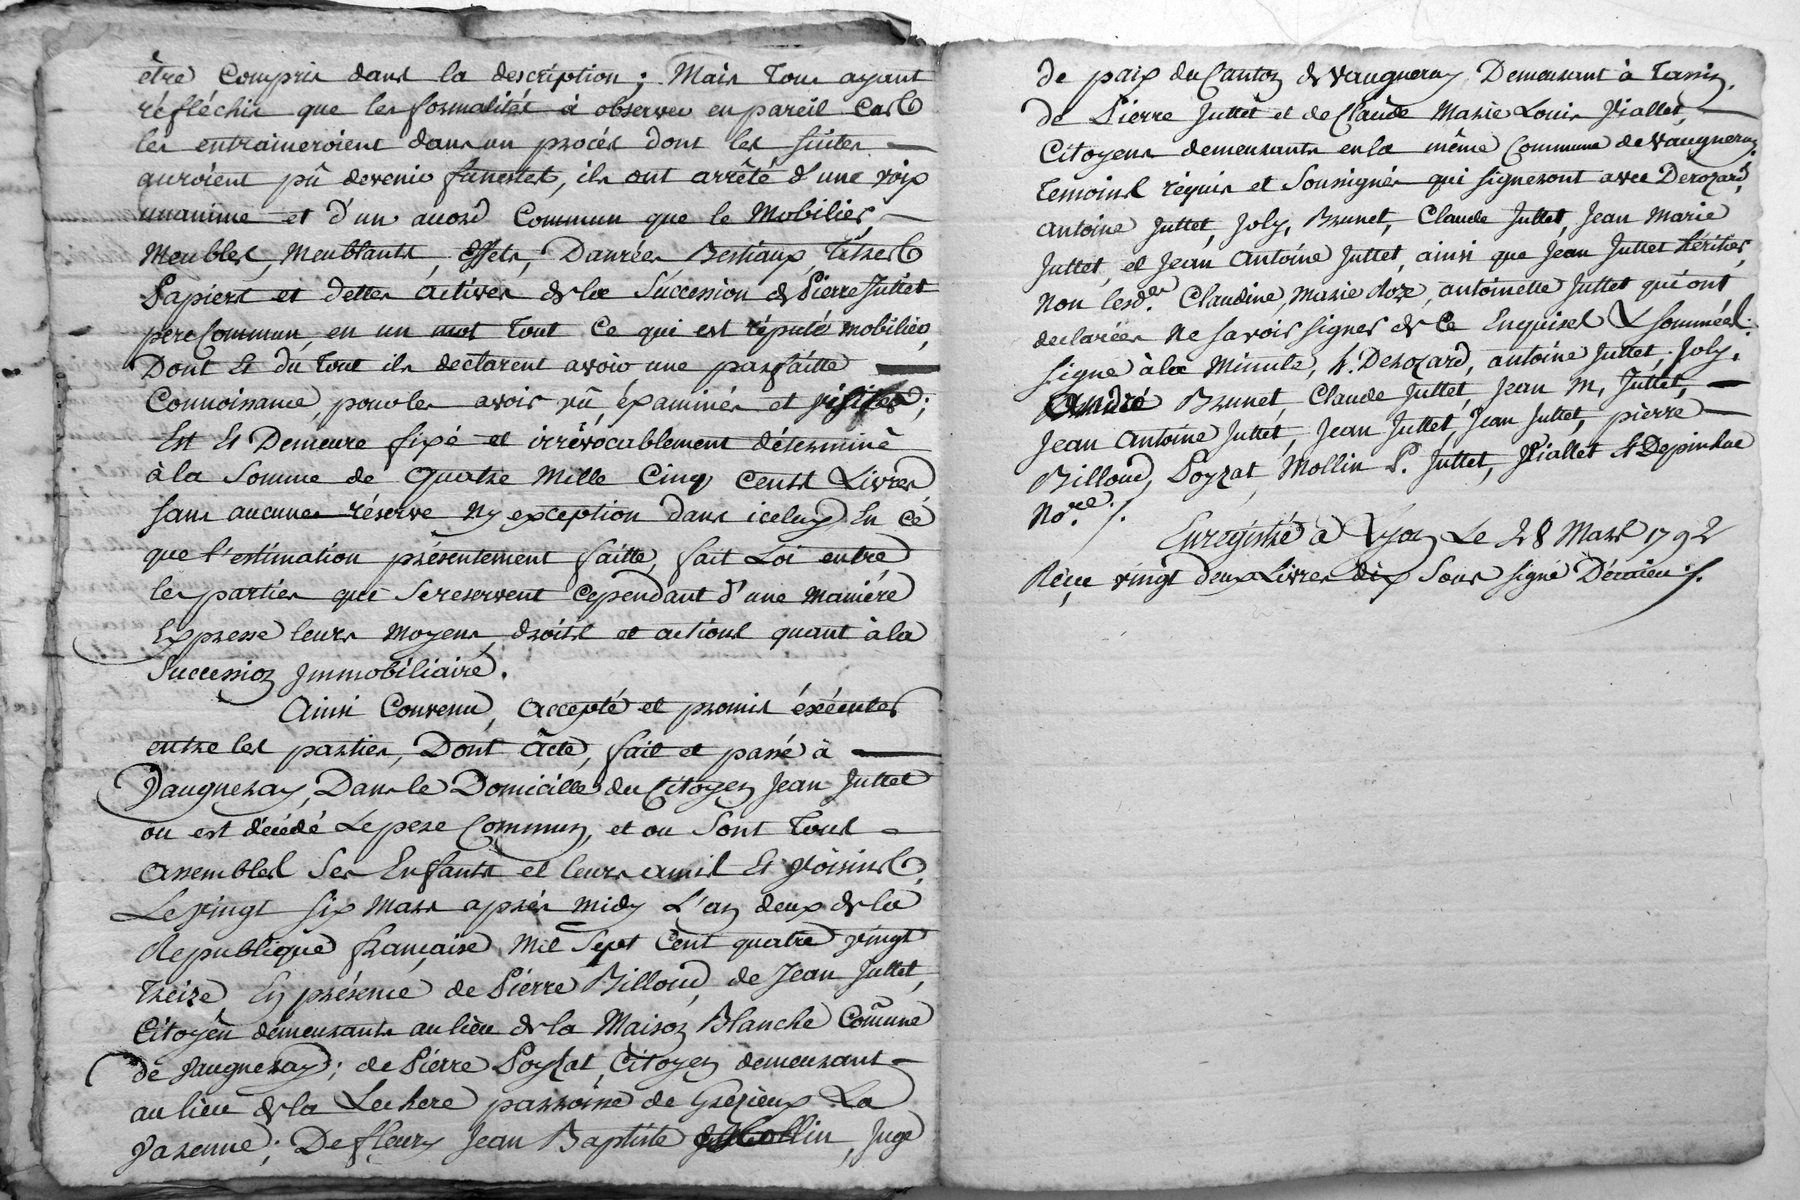 être Compris dans la description ; Mais Tous ayant
réfléchis que les formalités à observer en pareil Cas
les entraineroient dans un procés dont les suites
auroient pû devenir funestes, ils ont arrêté d'une voix
unanime et d'un acord Commun que le Mobilier,
Meubles, Meublants, Effets, Danrées Bestiaux, Titres
Papiers et dettes actives de la Succession de Pierre Juttet
pere Commun, en un mot Tout Ce qui est réputé mobilier,
Dont Et du Tout ils declarent avoir une parfaitte
Connoissance, pour les avoir vû, éxaminés et visités ;
Est Et Demeure fixé et irrévocablement déterminé
à la Somme de Quatre Mille Cinq Cents Livres
sans aucune réserve Ny exception dans iceluy En Cé
que l'estimation présentement faitte, fait Loi entre
les parties qui Se reservent Cependant d'une maniére
Expresse leurs moyens, droits et actions quant à la
Succession Immobiliaire.
Ainsi Convenu, accepté et promis éxécuter
entre les parties, Dont Acte, fait et passé à
Vaugneray, Dans le Domicille du Citoyen Jean Juttet
ou est décédé Le pere Commun, et ou Sont Tous
assemblés Ses Enfants et leurs amis Et Voisins,
Le vingt six Mars aprés midy L'an deux de la
Republique française, Mil Sept Cent quatre vingt
Treize En présence de Pierre Billoud, de Jean Juttet,
Citoyen demeurants au lieu de la Maison Blanche Comune
de Vaugneray ; de Pierre Poyzat, Citoyen demeurant
au lieu de la Lechere parroisse de Grezieux La
Varenne ; De fleury Jean Baptiste Mollin, Juge
de paix du Canton de Vaugneray Demeurant à Tassin,
de Pierre Juttet et de Claude Marie Louis Viallet,
Citoyens demeurants en la même Commune de Vaugneray
Temoins réquis et Soussignés qui signeront avec Derozard,
antoine Juttet, Joly, Brunet, Claude Juttet, Jean Marie
Juttet, et Jean Antoine Juttet, ainsi que Jean Juttet héritier,
Non lesd.es Claudine, Marie Roze, antoinette Juttet qui ont
declarées Ne savoir signer de Ce Enquises & Sommées.
Signé à la Minute, Derozard, antoine Juttet, Joly,
André Brunet, Claude Juttet, Jean M. Juttet,
Jean Antoine Juttet, Jean Juttet, Jean Juttet, pierre
Billoud, Poyzat, Mollin P. Juttet, Viallet & Depinhac
No.re ./.
Enregistré à Lyon Le 28 Mars 1792
Réçu vingt deux Livres dix Sous signé ./.